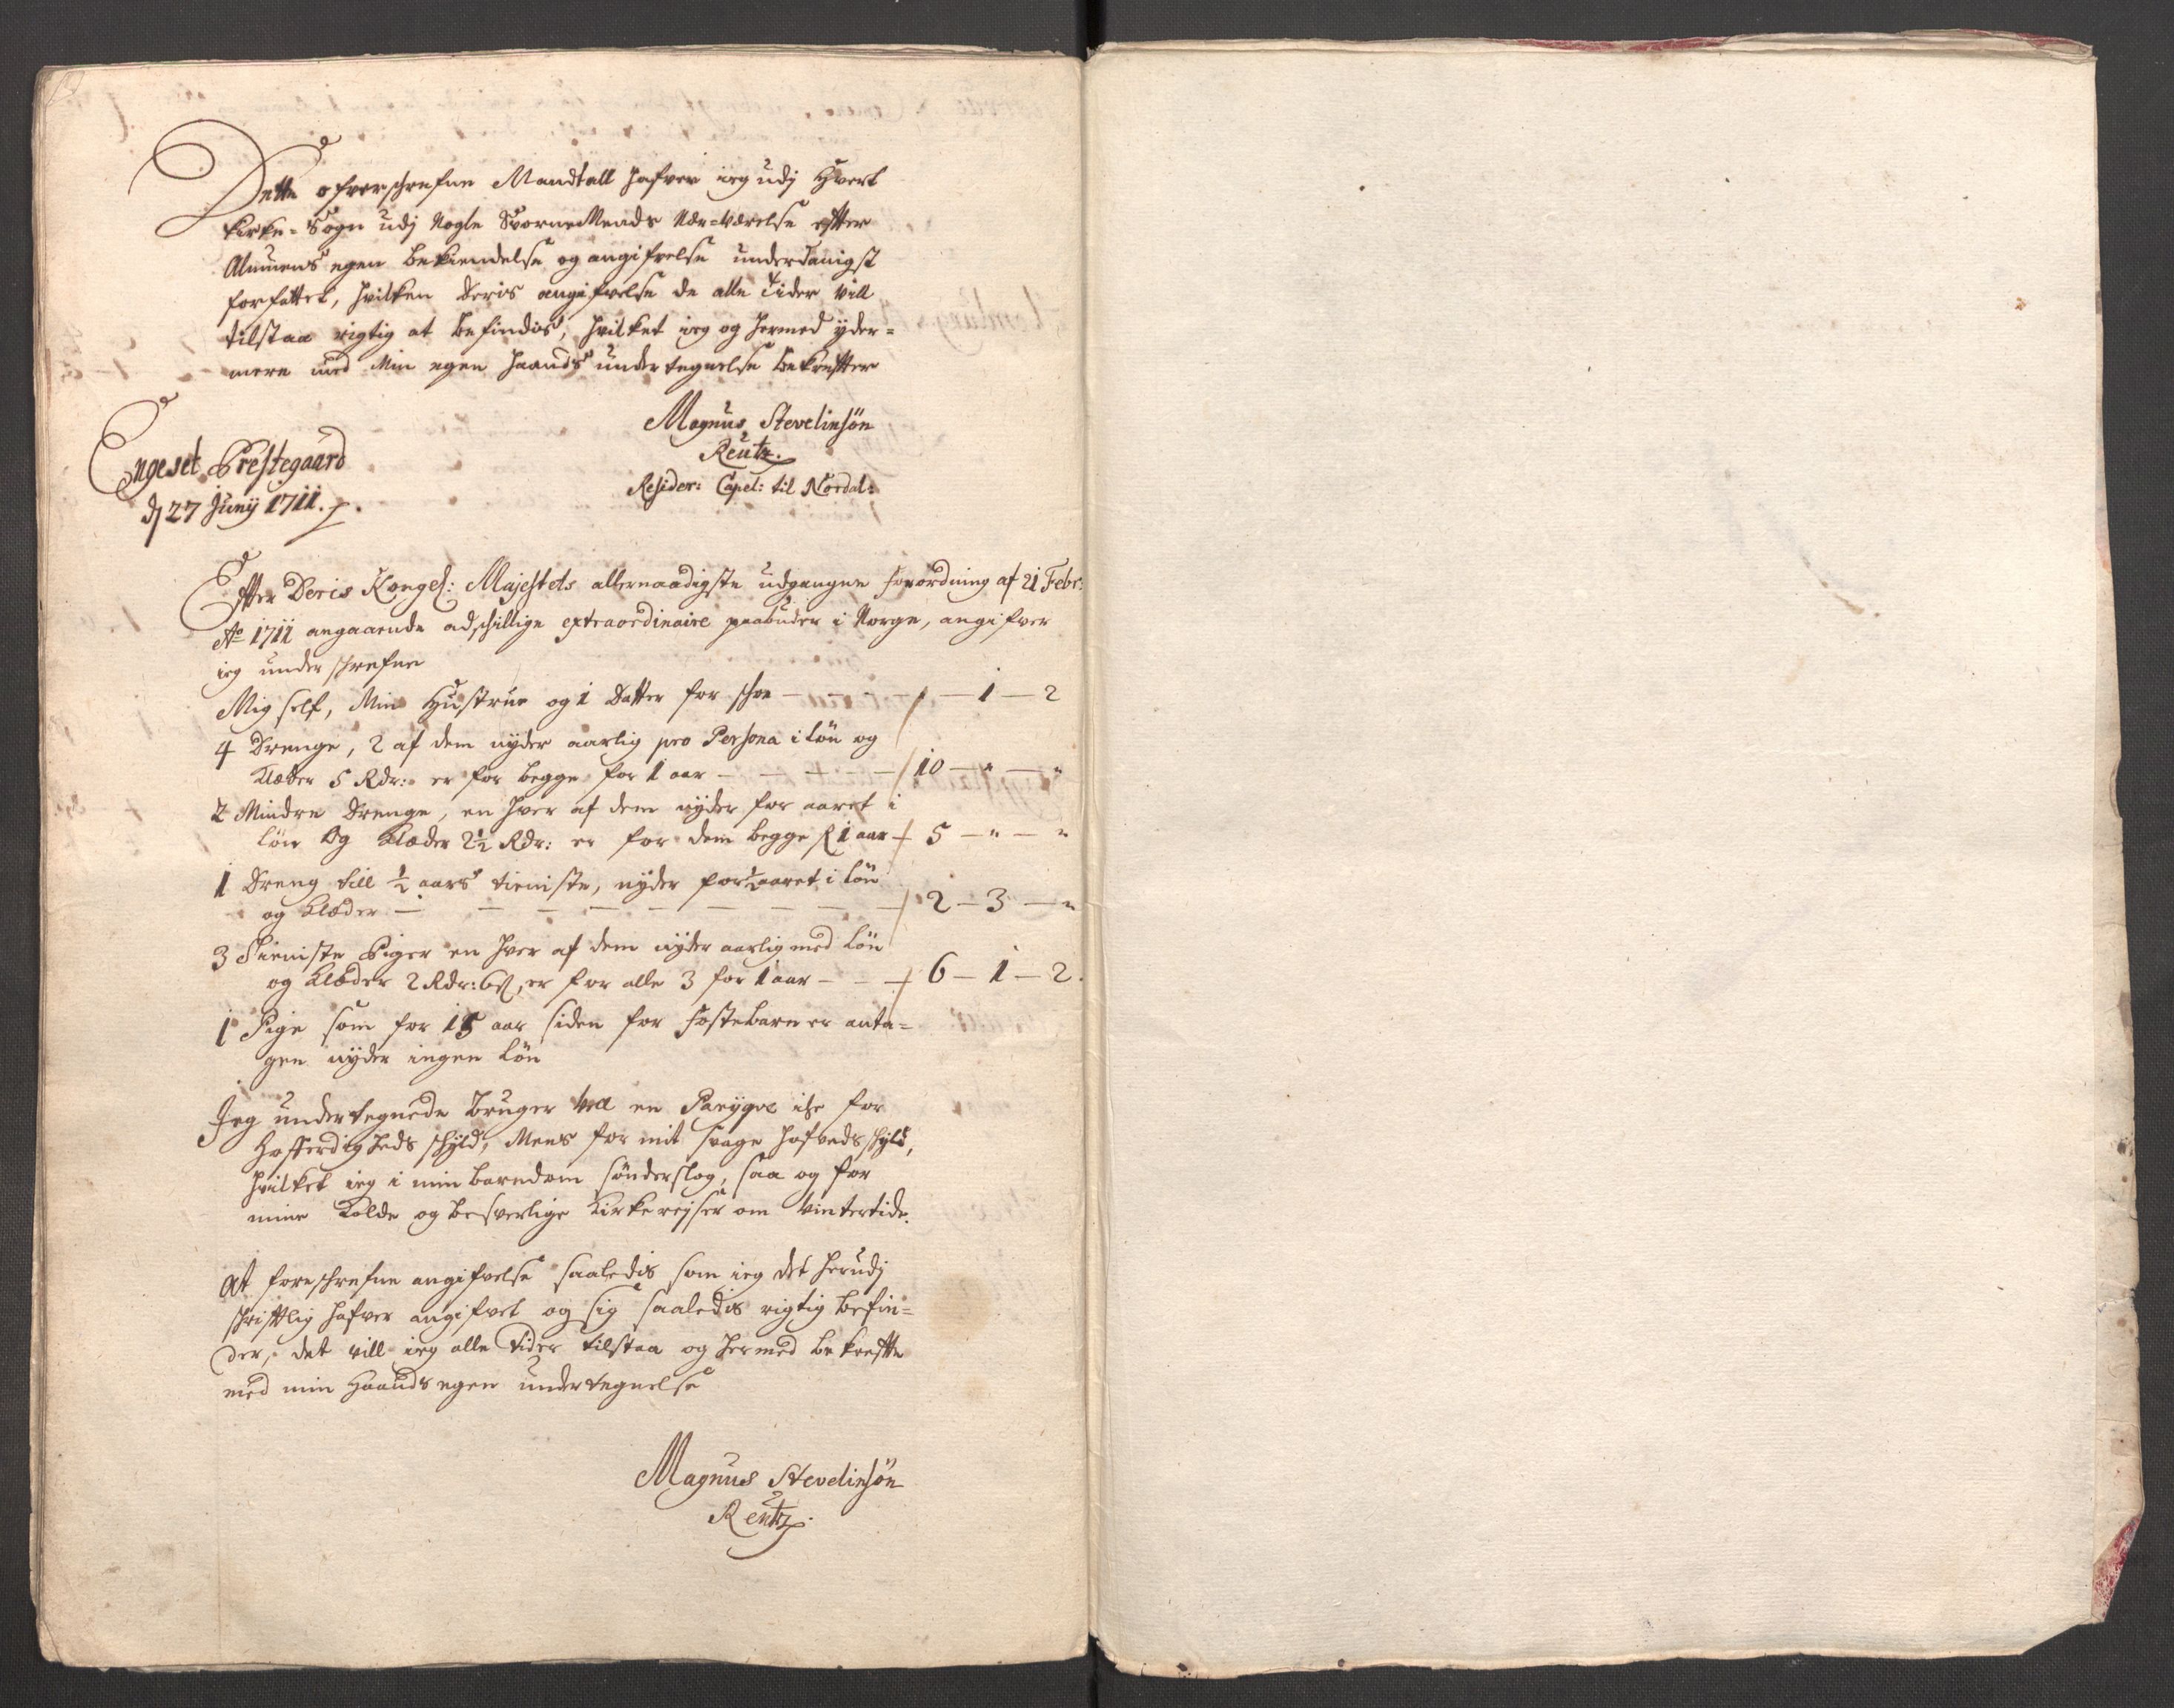 Dette ofverschrefne Mandtall hafver ieg udj Hvert
Kirke-Sogn udj Nogle SvorneMends Nær-Værelse efter
Almuens egen bekiendelse og angifvelse underdanigst
forfattet, hvilken deris angifvelse de alle tider vill
tilstaa rigtig at befindis, hvilket ieg og hermed yder-
mere med Min egen Haands undertegnelse bekrefter
Magnus Stevelinsön
Reutz.
Resider: Capel: til Nordal:
Engeset Prestegaard
dj 27 Junij 1711.
Efter Deris Kongel: Majestets allernaadigste udgangne forordning af 21 Febr:
Ao 1711 angaaende adschillige extraordinaire paabuder i Norge, angifver
ieg underschrefne
Mig self, Min Hustrue og 1 Datter for schoe - - - 1 - 2
4 Drenge, 2 af dem nyder aarlig pro Persona i løn og
Klæder 5 Rdr: er for begge for 1 aar - - - 10 - " - "
2 Mindre Drenge, en hver af dem nyder for aaret i
løn Og Klæder 2½ Rdr: er for dem begge p 1 aar 5 - " - "
1 Dreng till ½ aars tieniste, nyder for ½ aaret i løn
og Klæder - - - - - - - - 2 - 3 - "
3 Tieniste Piger en hver af dem nyder aarlig med løn
og Klæder 2 Rdr: 6 ß, er for alle 3 for 1 aar - - 6 - 1 - 2.
1 Pige som for 15 aar siden for fostebarn er anta-
gen nyder ingen løn
Jeg undertegnede Bruger vell en Parÿqve iche for
Hofferdigheds schyld, Mens for mit svage hofveds schyld,
hvilket ieg i min barndom sønderslog, saa og for
mine Kolde og besverlige Kirkereyser om Vintertide.
At foreschrefne angifvelse saaledis som ieg det herudj
schriftlig hafver angifvet og sig saaledis rigtig befin-
der, det vill ieg alle tider tilstaa og hermed bekrefte
med min Haands egen undertegnelse
Magnus Stevelinsön
Reutz.